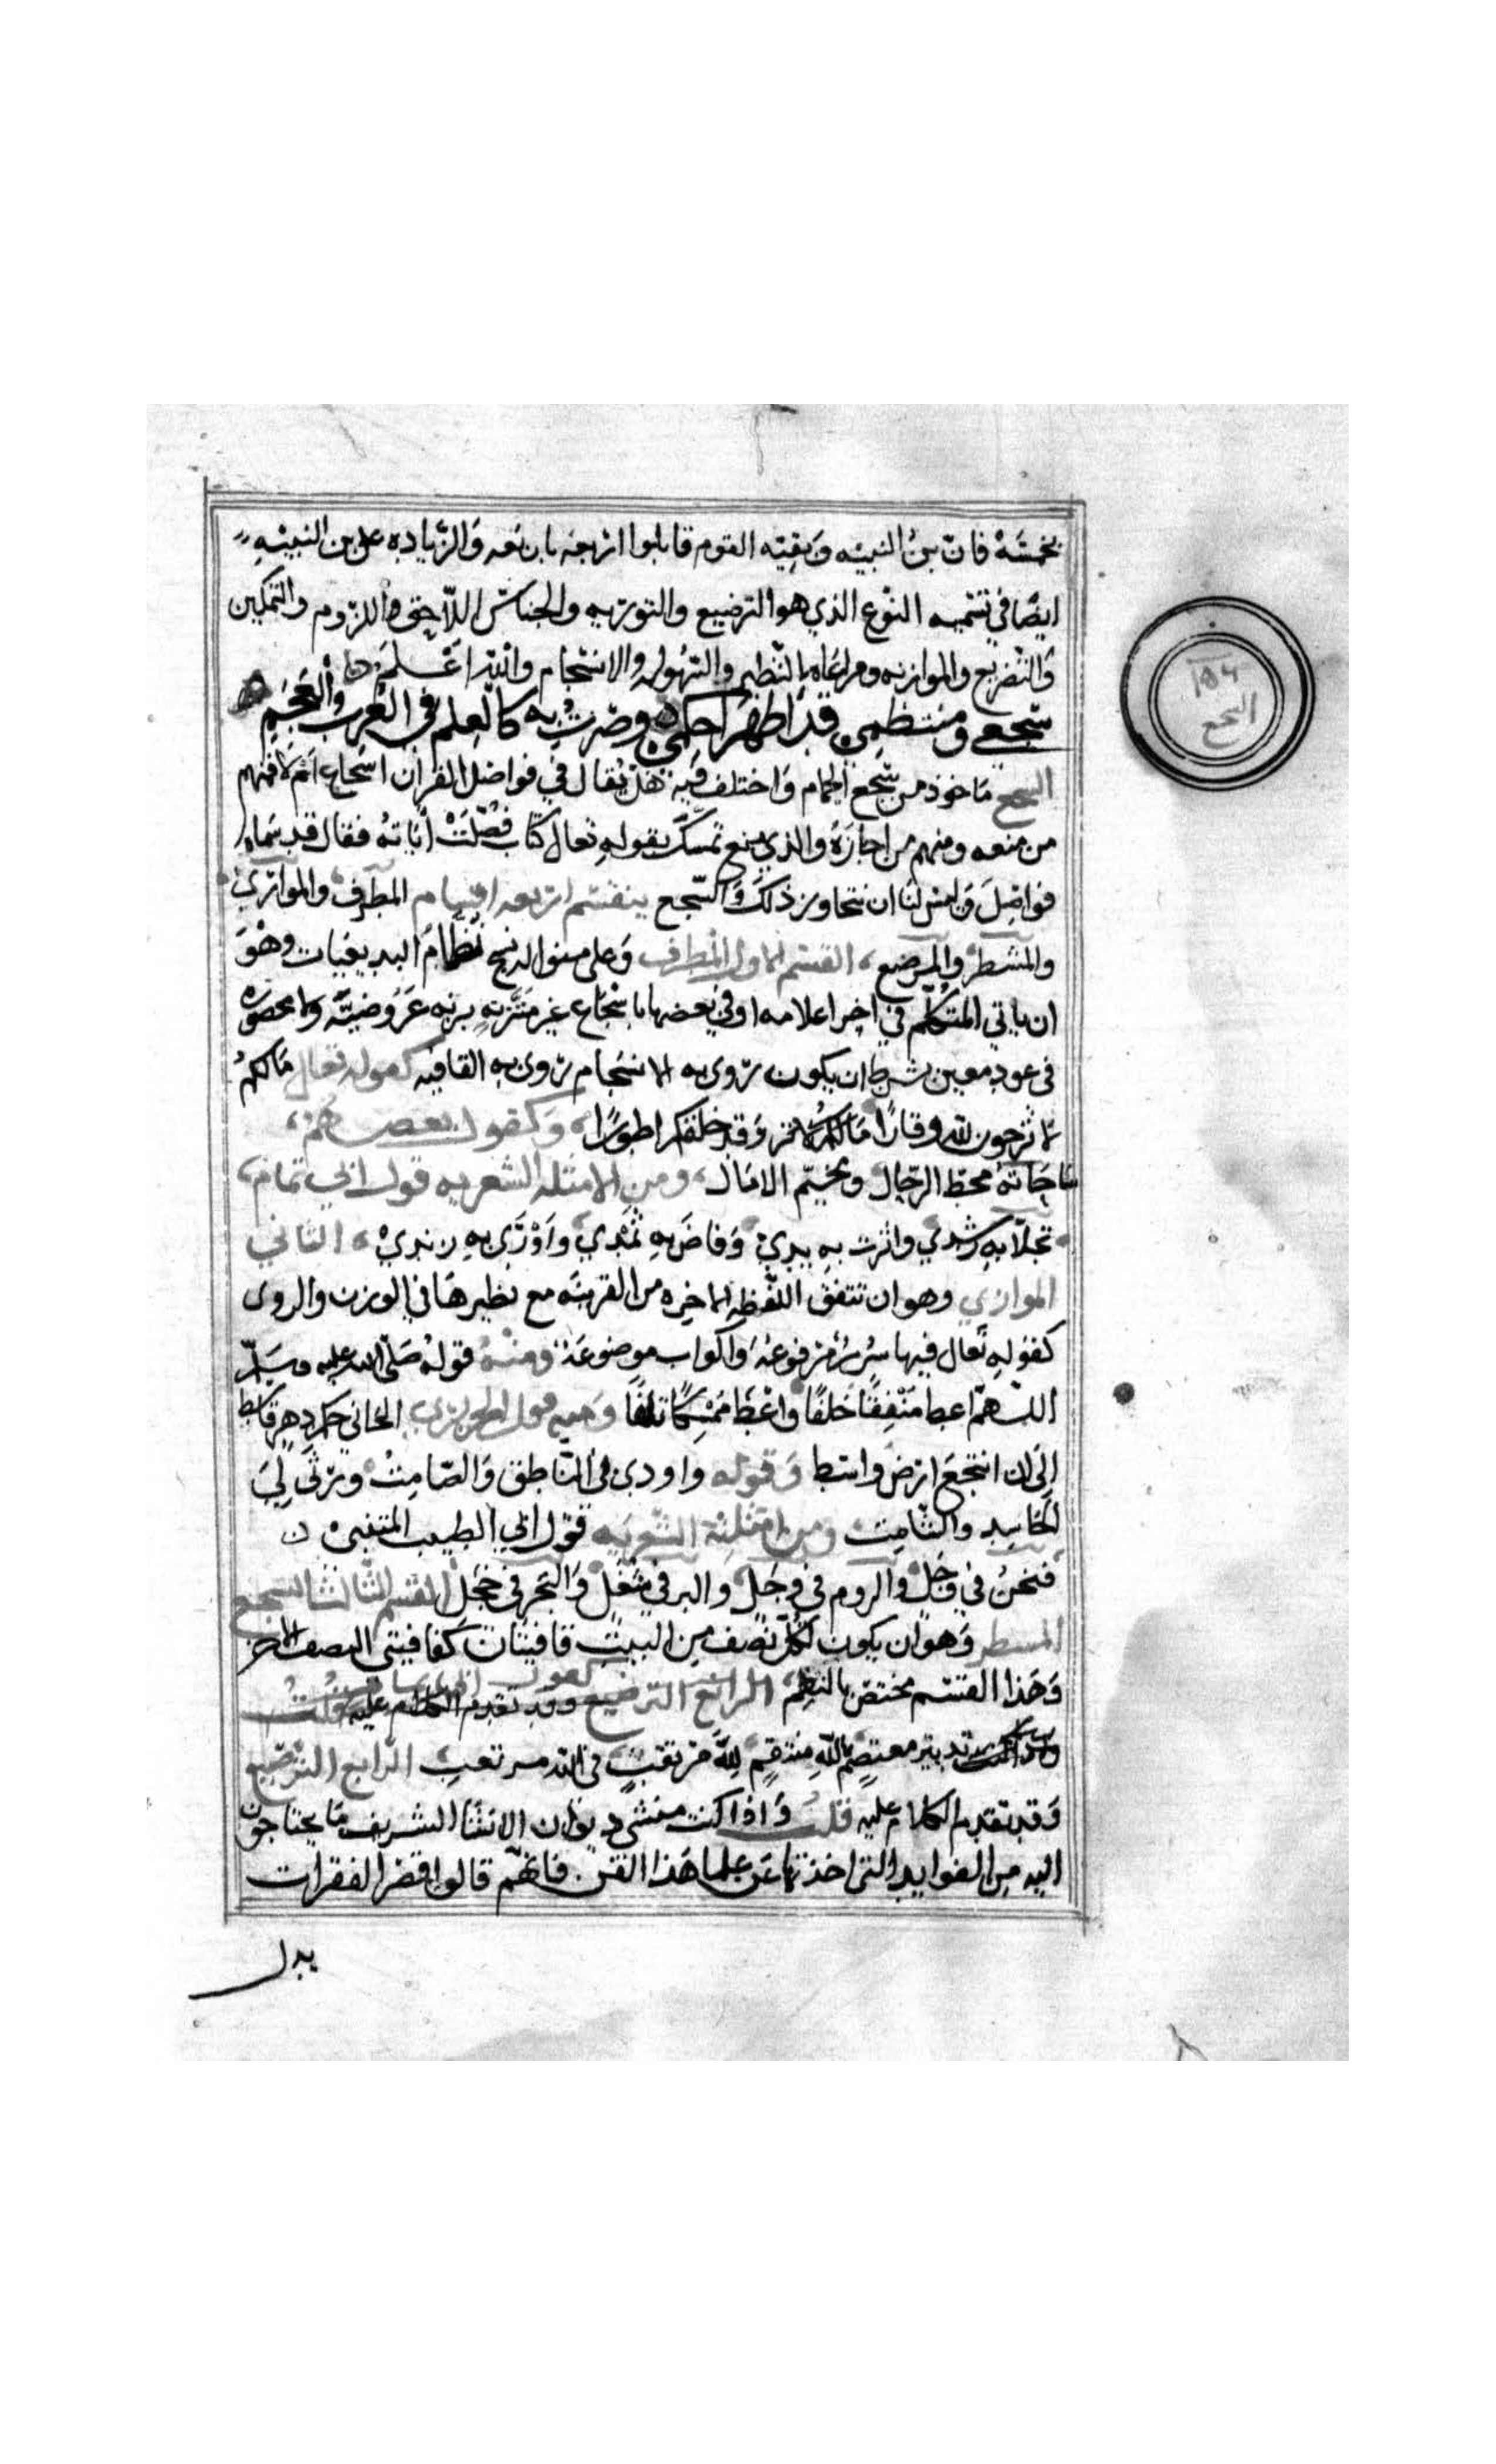 بخمسة فان بن النبيه وبقيه القوم قابلوا اربعه باربعه والزياده على بن النبيه
ايضا في تتميه النوع الذي هو الترصيع والتوريه والجناس اللاحق واللزوم والتمكين
والتصريع والموازنه ومراعاه النظير والسهوله والانسجام والله اعلم
سجعي ومنتظمي قد اظهرا حكمي وصرت به كالعلم في العرب والعجم
السجع ماخوذ من سجع الحمام واختلف فيه هل يقال في فواصل القران اسجاع ام لا فمنهم
من منعه ومنهم من اجازه والذي منع تمسك بقوله تعالى كتاب فصلت اياته فقال قد سماه
فواصل وليس لنا ان نتجاوز ذلك والسجع ينقسم اربعه اقسام المطرف والموازي
والمشطر والمرصع القسم الاول المطرف وعلى منواله نسج نظام البديعيات وهو
ان ياتي المتكلم في اخر كلامه او في بعضها باسجاع غير متزنه بزنه عروضيه ولا محصوره
في عدد معين بشرط ان يكون روي الاسجام روي القافيه كقوله تعالى مالكم
لا ترجون لله وقارا وقد خلقكم اطوارا وكقول بعضهم
جنابه محط الرحال ومخيم الامال ومن الامثله الشعريه قول ابي تمام
تجلا به رشدي واثرت به يدي وفاض به ثمدي واورى به زندي الثاني
الموازي وهو ان تتفق اللفظه الاخيره من القرينه مع نظيرها في الوزن والروى
كقوله تعالى فيها سرر مرفوعة واكواب موضوعة ومنه قوله صلى الله عليه وسلم
اللهم اعط منفقا خلفا واعط ممسكا تلفا ومنه قول الحريري الجاني حكم دهر قاسط
الى ان انتجع ارض واسط وقوله واودى بي الناطق والصامت ورثى لي
الحاسد والشامت ومن امثلته الشعريه قول ابي الطيب المتنبي
فنحن في جذل والروم في وجل والبر في شغل والبحر في خجل القسم الثالث السجع
المشطر وهو ان يكون لكل نصف من البيت قافيتان كقافيتي النصف الاخر
وهذا القسم مختص بالنظم كقول ابي تمام
تدبير معتصم بالله منتقم لله مرتقب في الله مرتغب الرابع الترصيع
وقد تقدم الكلام عليه قلت واذا كنت منشي ديوان الانشا الشريف ما يحتاجون
اليه من الفوايد التي اخذتها عن علما هذا الفن فانهم قالوا اقصر الفقرات
يدل
١٥٤
السجع